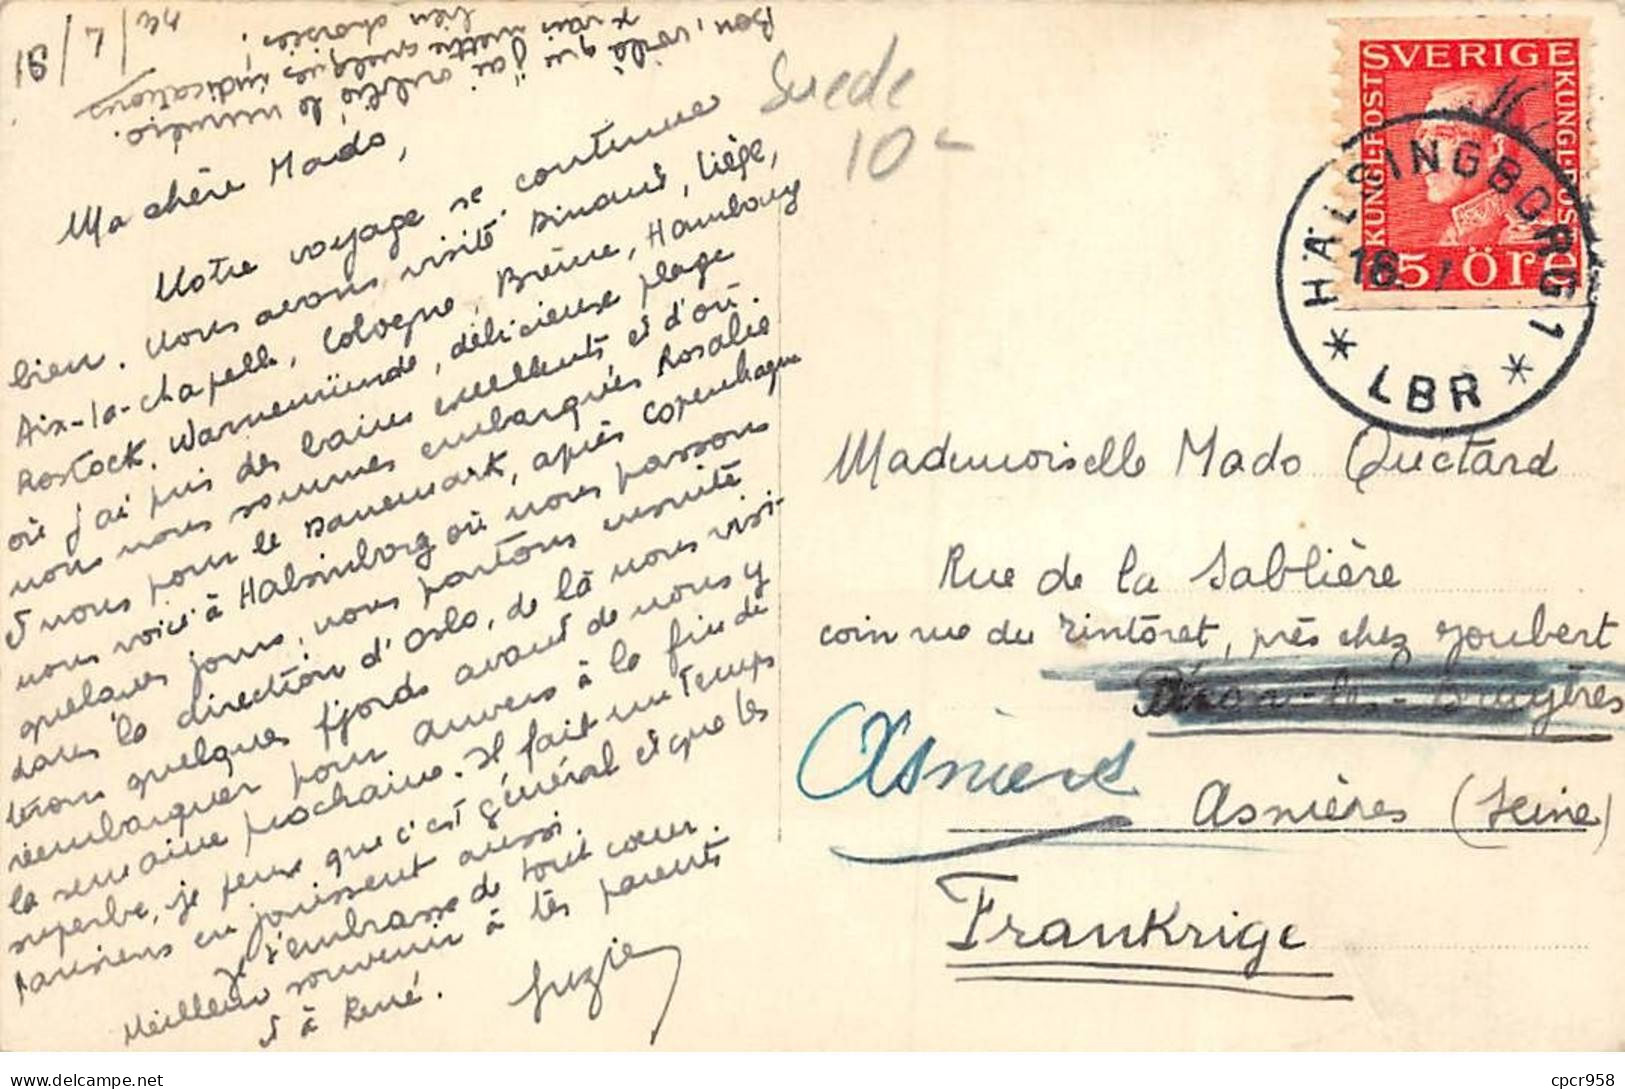 Bon, voilà que j'ai oublié le numéro.
je vais mettre quelques indications
bien choisies !
Suede
10 -
Ma chère Mado,
Notre voyage se continue
bien. Nous avons visité Dinant, Liège,
Aix-la-chapelle, Cologne, Brême, Hambourg
Rostock, Warnemünde, délicieuse plage
où j'ai pris des bains excellents et d'où
nous nous sommes embarqués Rosalie
et nous pour le Danemark, après Copenhague
nous voici à Halsinborg où nous passons
quelques jours, nous partons ensuite
dans la direction d'Oslo, de là nous visi-
terons quelques fjords avant de nous y
réembarquer pour Anvers à la fin de
la semaine prochaine. Il fait un temps
superbe, je pense que c'est général et que les
Parisiens en jouissent aussi.
Je t'embrasse de tout cœur.
Meilleur souvenir à tes parents
et à René.
Suzie
SVERIGE
KUNGL-POST
KUNGL-POST
15 ÖRE
HÄLSINGBORG 1
18
LBR
Mademoiselle Mado Quetard
Rue de la Sablière
coin rue du Tintoret, près chez Joubert
Bruyères
Asnières
Asnières (Seine)
Frankrige
cpcr958